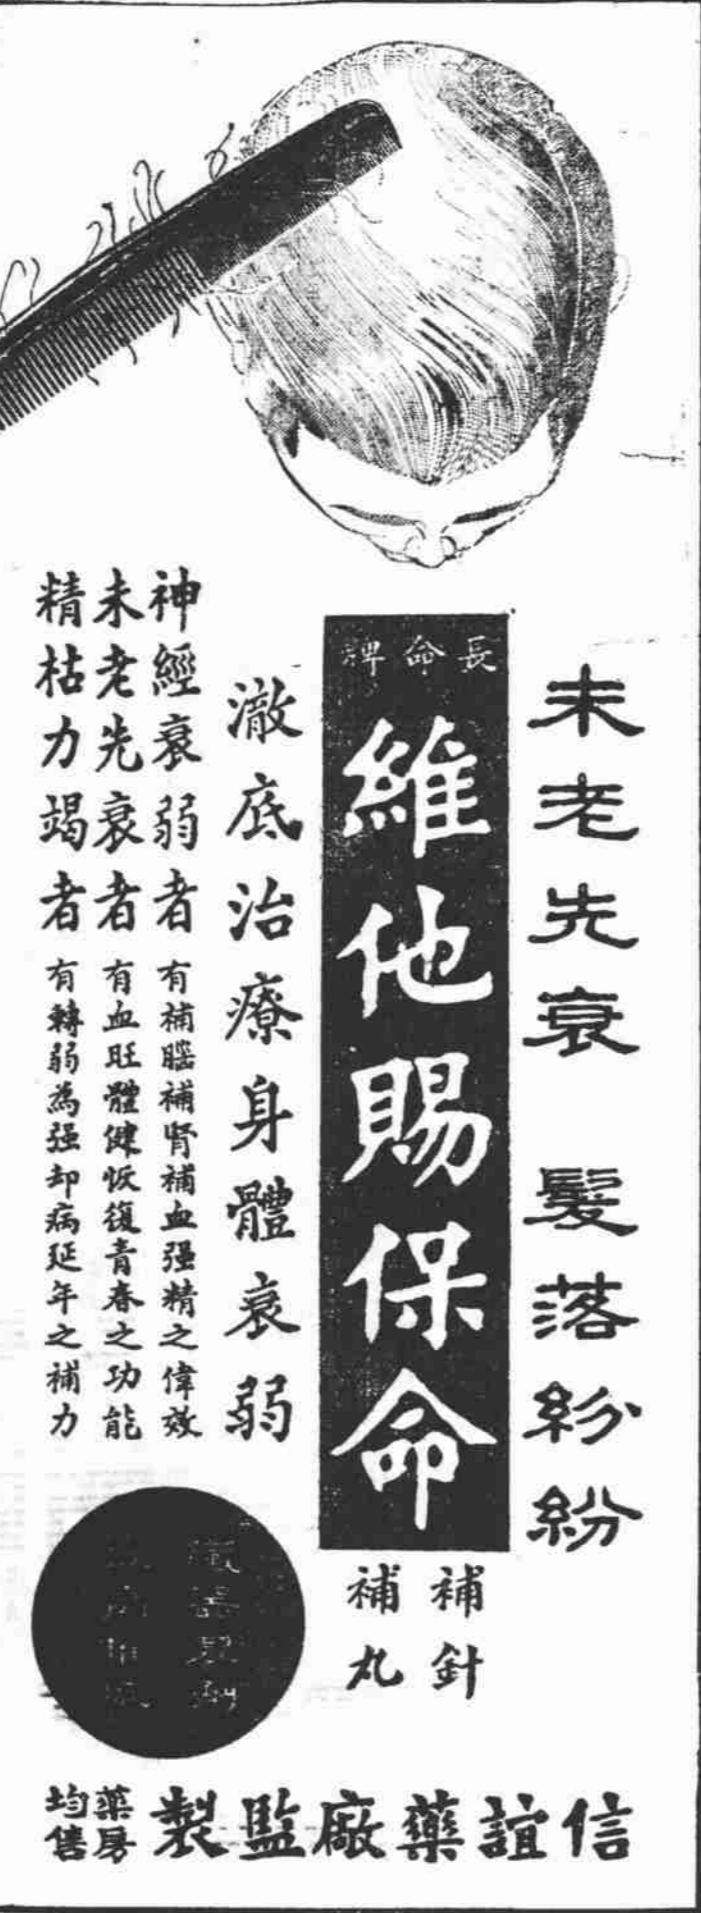 未老先衰 髮落紛紛
長命牌
維他賜保命
補針
補丸
澈底治療身體衰弱
神經衰弱者 有補腦補腎補血强精之偉效
未老先衰者 有血旺體健恢復青春之功能
精枯力竭者 有轉弱為强却病延年之補力
信誼藥廠監製
藥房
均售